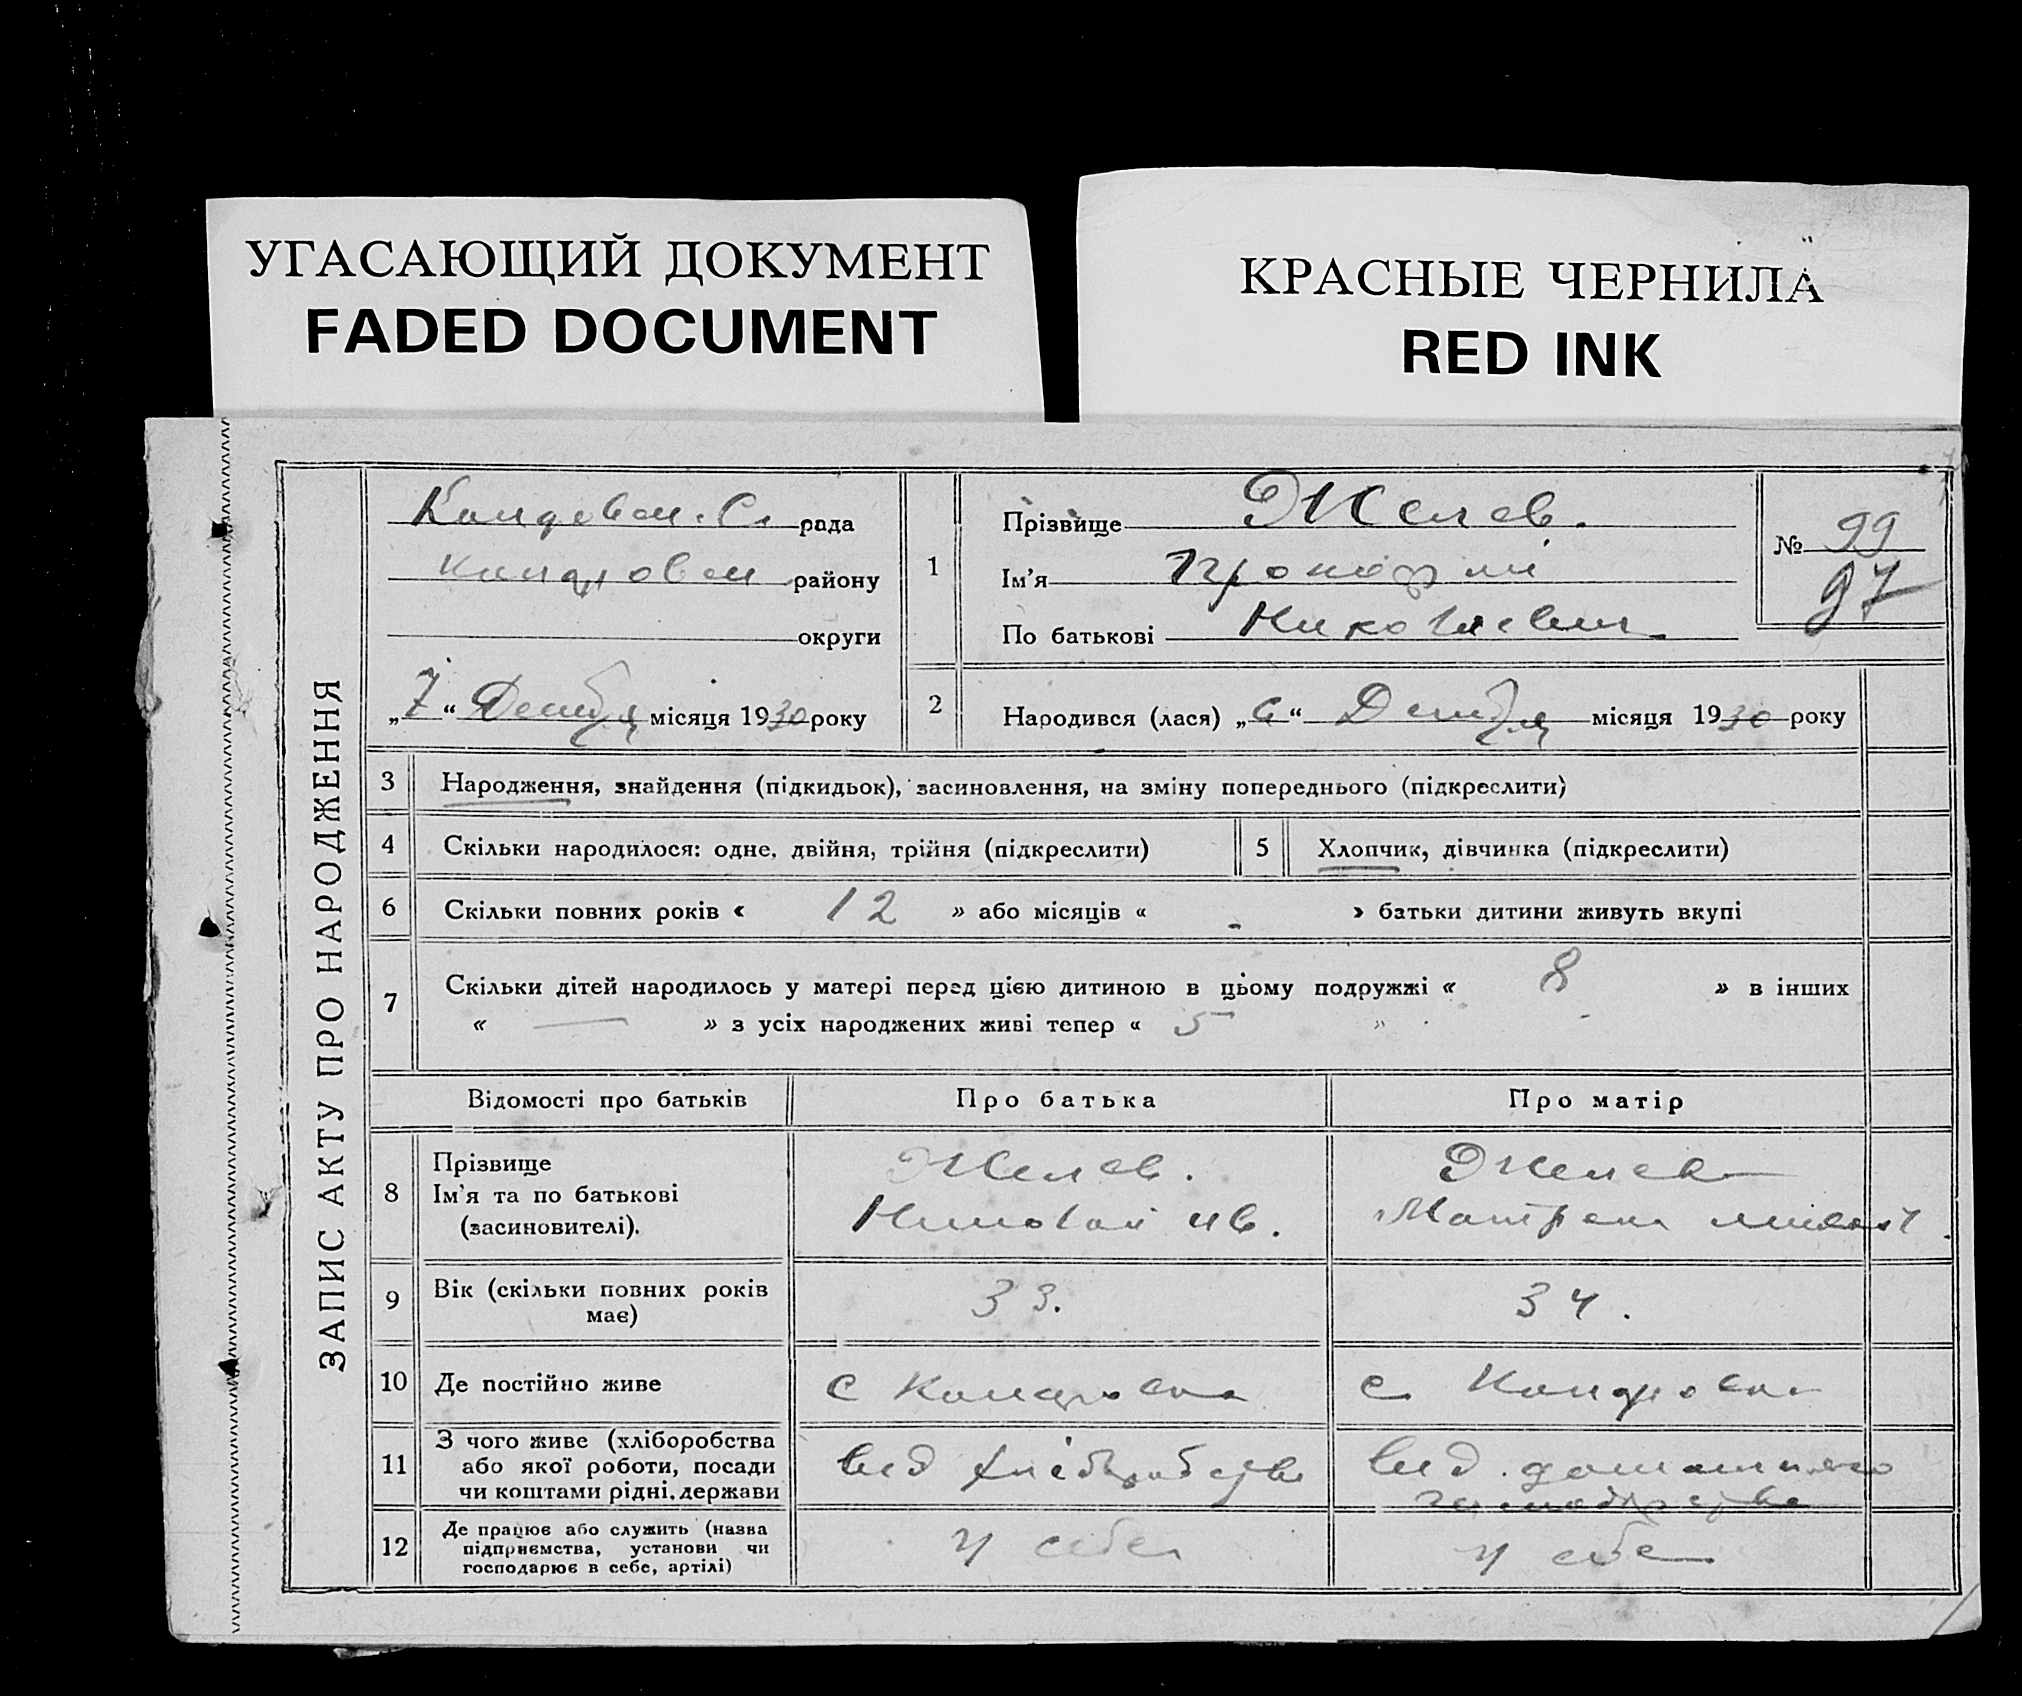 УГАСАЮЩИЙ ДОКУМЕНТ
FADED DOCUMENT
КРАСНЫЕ ЧЕРНИЛА
RED INK
ЗАПИС АКТУ ПРО НАРОДЖЕННЯ
рада
району
округи
„7“ Декабря місяця 1930 року
1
Прізвище Желев.
Ім'я
По батькові Николаевич
№ 99
97
2
Народився (лася) „6“ Декабря місяця 1930 року
3
Народження, знайдення (підкидьок), засиновлення, на зміну попереднього (підкреслити)
4
Скільки народилося: одне, двійня, трійня (підкреслити)
5
Хлопчик, дівчинка (підкреслити)
6
Скільки повних років « 12 » або місяців « - » батьки дитини живуть вкупі
7
Скільки дітей народилось у матері перед цією дитиною в цьому подружжі « 8 » в інших
« — » з усіх народжених живі тепер « 5 »
Відомості про батьків
Про батька
Про матір
8
Прізвище
Ім'я та по батькові
(засиновителі).
Желев.
Николай Ив.
Желев
9
Вік (скільки повних років
має)
33.
34.
10
Де постійно живе
с
с
11
З чого живе (хліборобства
або якої роботи, посади
чи коштами рідні, держави
12
Де працює або служить (назва
підприємства, установи чи
господарює в себе, артілі)
у себе
у себе